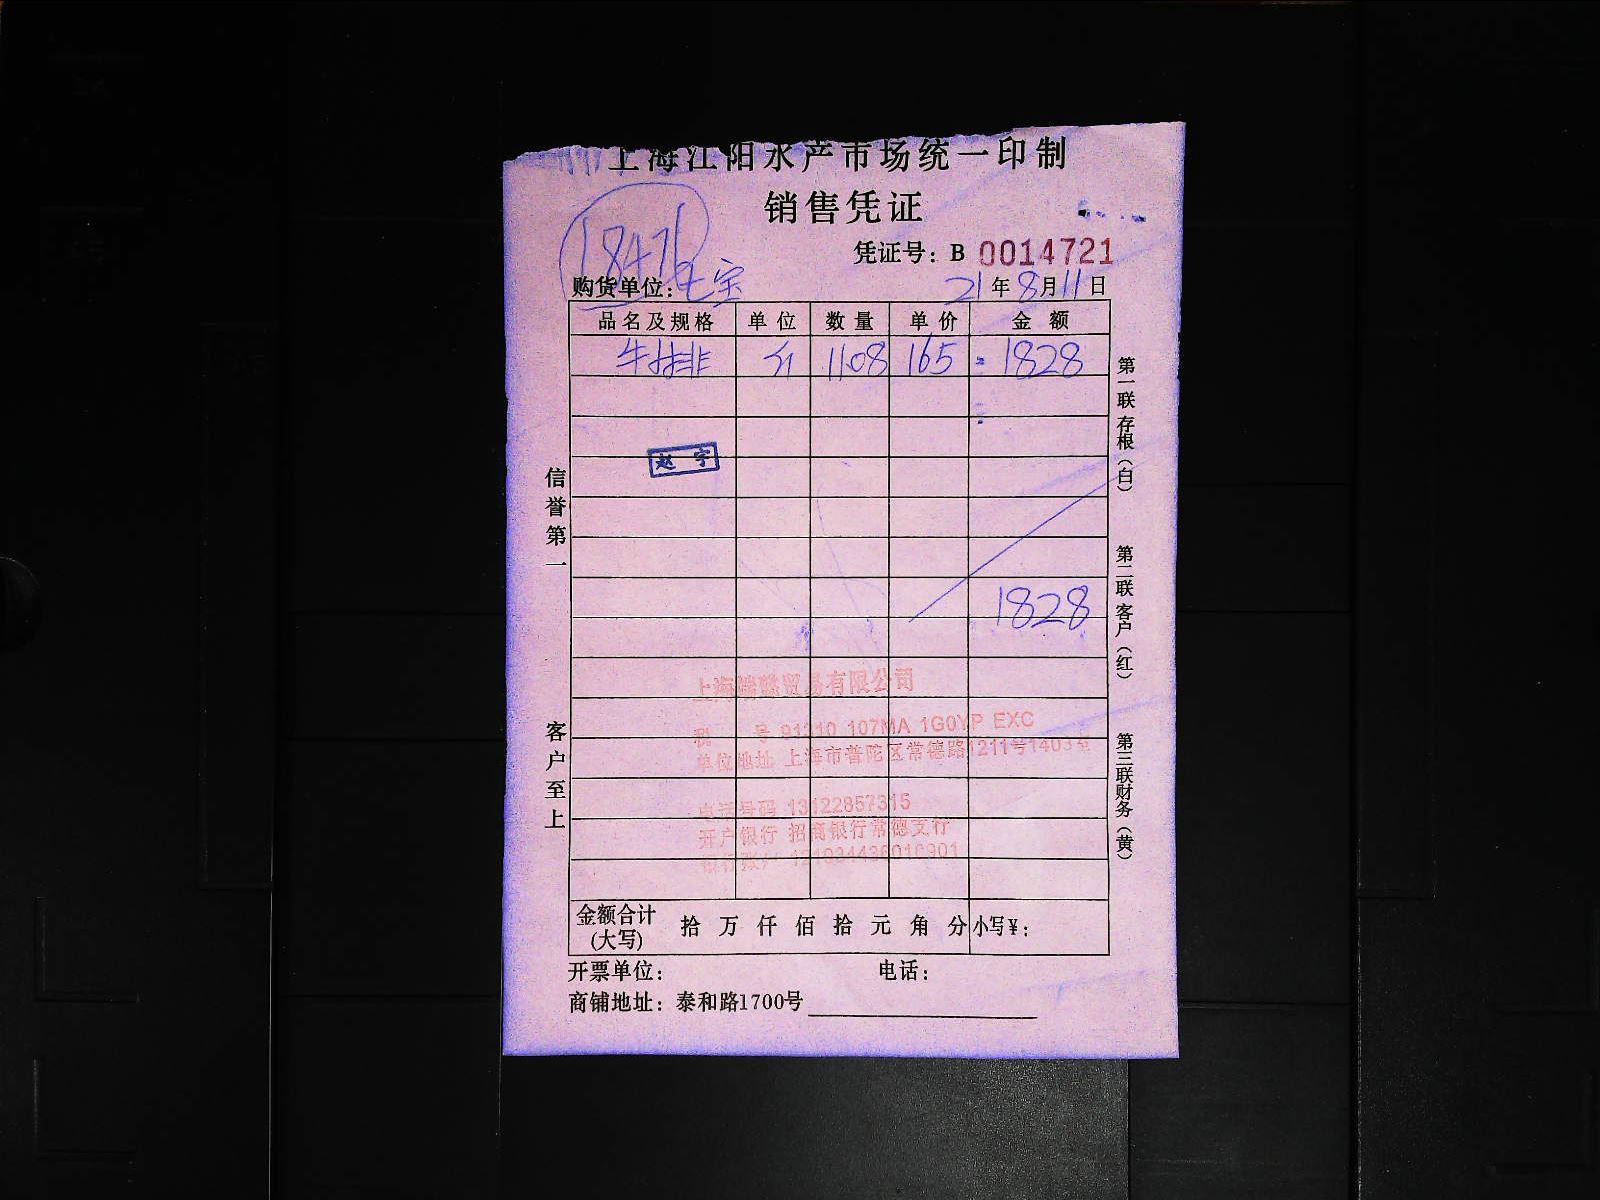 上海江阳水产市场统一印制
销售凭证
凭证号：B 0014721
18476
购货单位：七宝
21年8月11日
品名及规格 单位 数量 单价 金额
牛排 斤 11.08 165 = 1828
赵宇
1828
上海 贸易有限公司
税 号 91310 107MA 1G0YP EXC
单位地址 上海市普陀区常德路1211号1403室
电话号码 13122857315
开户银行 招商银行常德支行
银行账户
金额合计(大写) 拾 万 仟 佰 拾 元 角 分 小写¥：
开票单位： 电话：
商铺地址：泰和路1700号
信誉第一
客户至上
第一联 存根（白）
第二联 客户（红）
第三联 财务（黄）